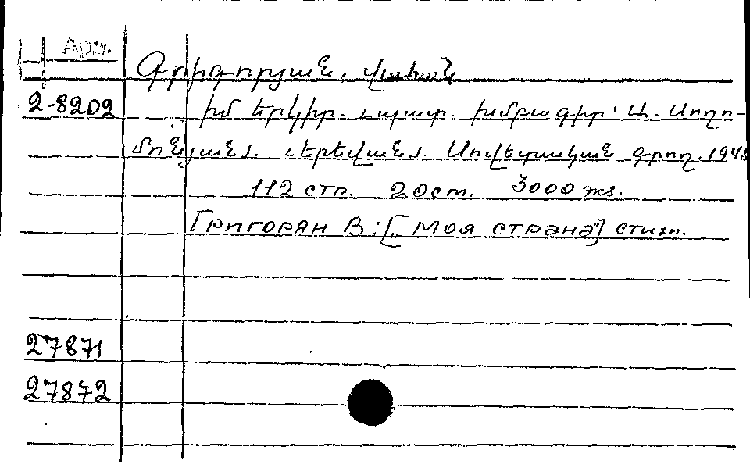 Арм.
Գրիգորյան, Վահան
2-8202 Իմ երկիր. Խմբագիր՝ Ա. Սողո-
մոնյան. Երևան. Սովետական գրող. 1978
112 стр. 20 ст. 3000 экз.
Григорян В: [Моя страна] стихи.
27871
27872